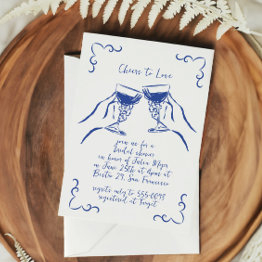 Cheers to Love
join me for a
bridal shower
in honor of Julia Mejia
on June 25th at 8pm at
Bistro 29, San Francisco
regrets only to 555-0098
registered at Target